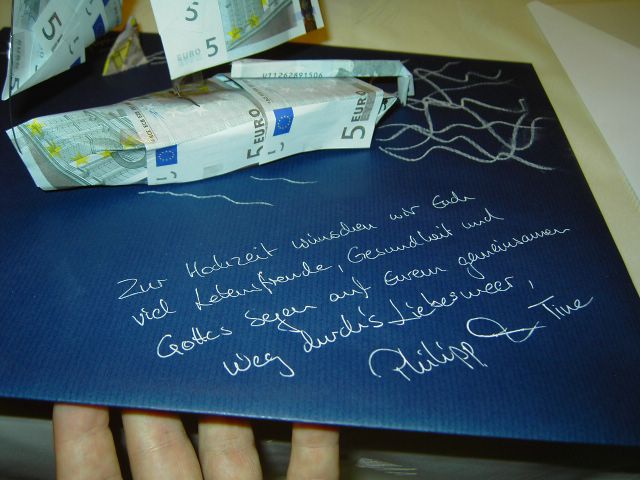 5
5
EURO
V11262891506
5 EURO
5 EURO
Zur Hochzeit wünschen wir Euch
viel Lebensfreude, Gesundheit und
Gottes Segen auf Eurem gemeinsamen
Weg durch's Liebesmeer,
Philipp & Tine